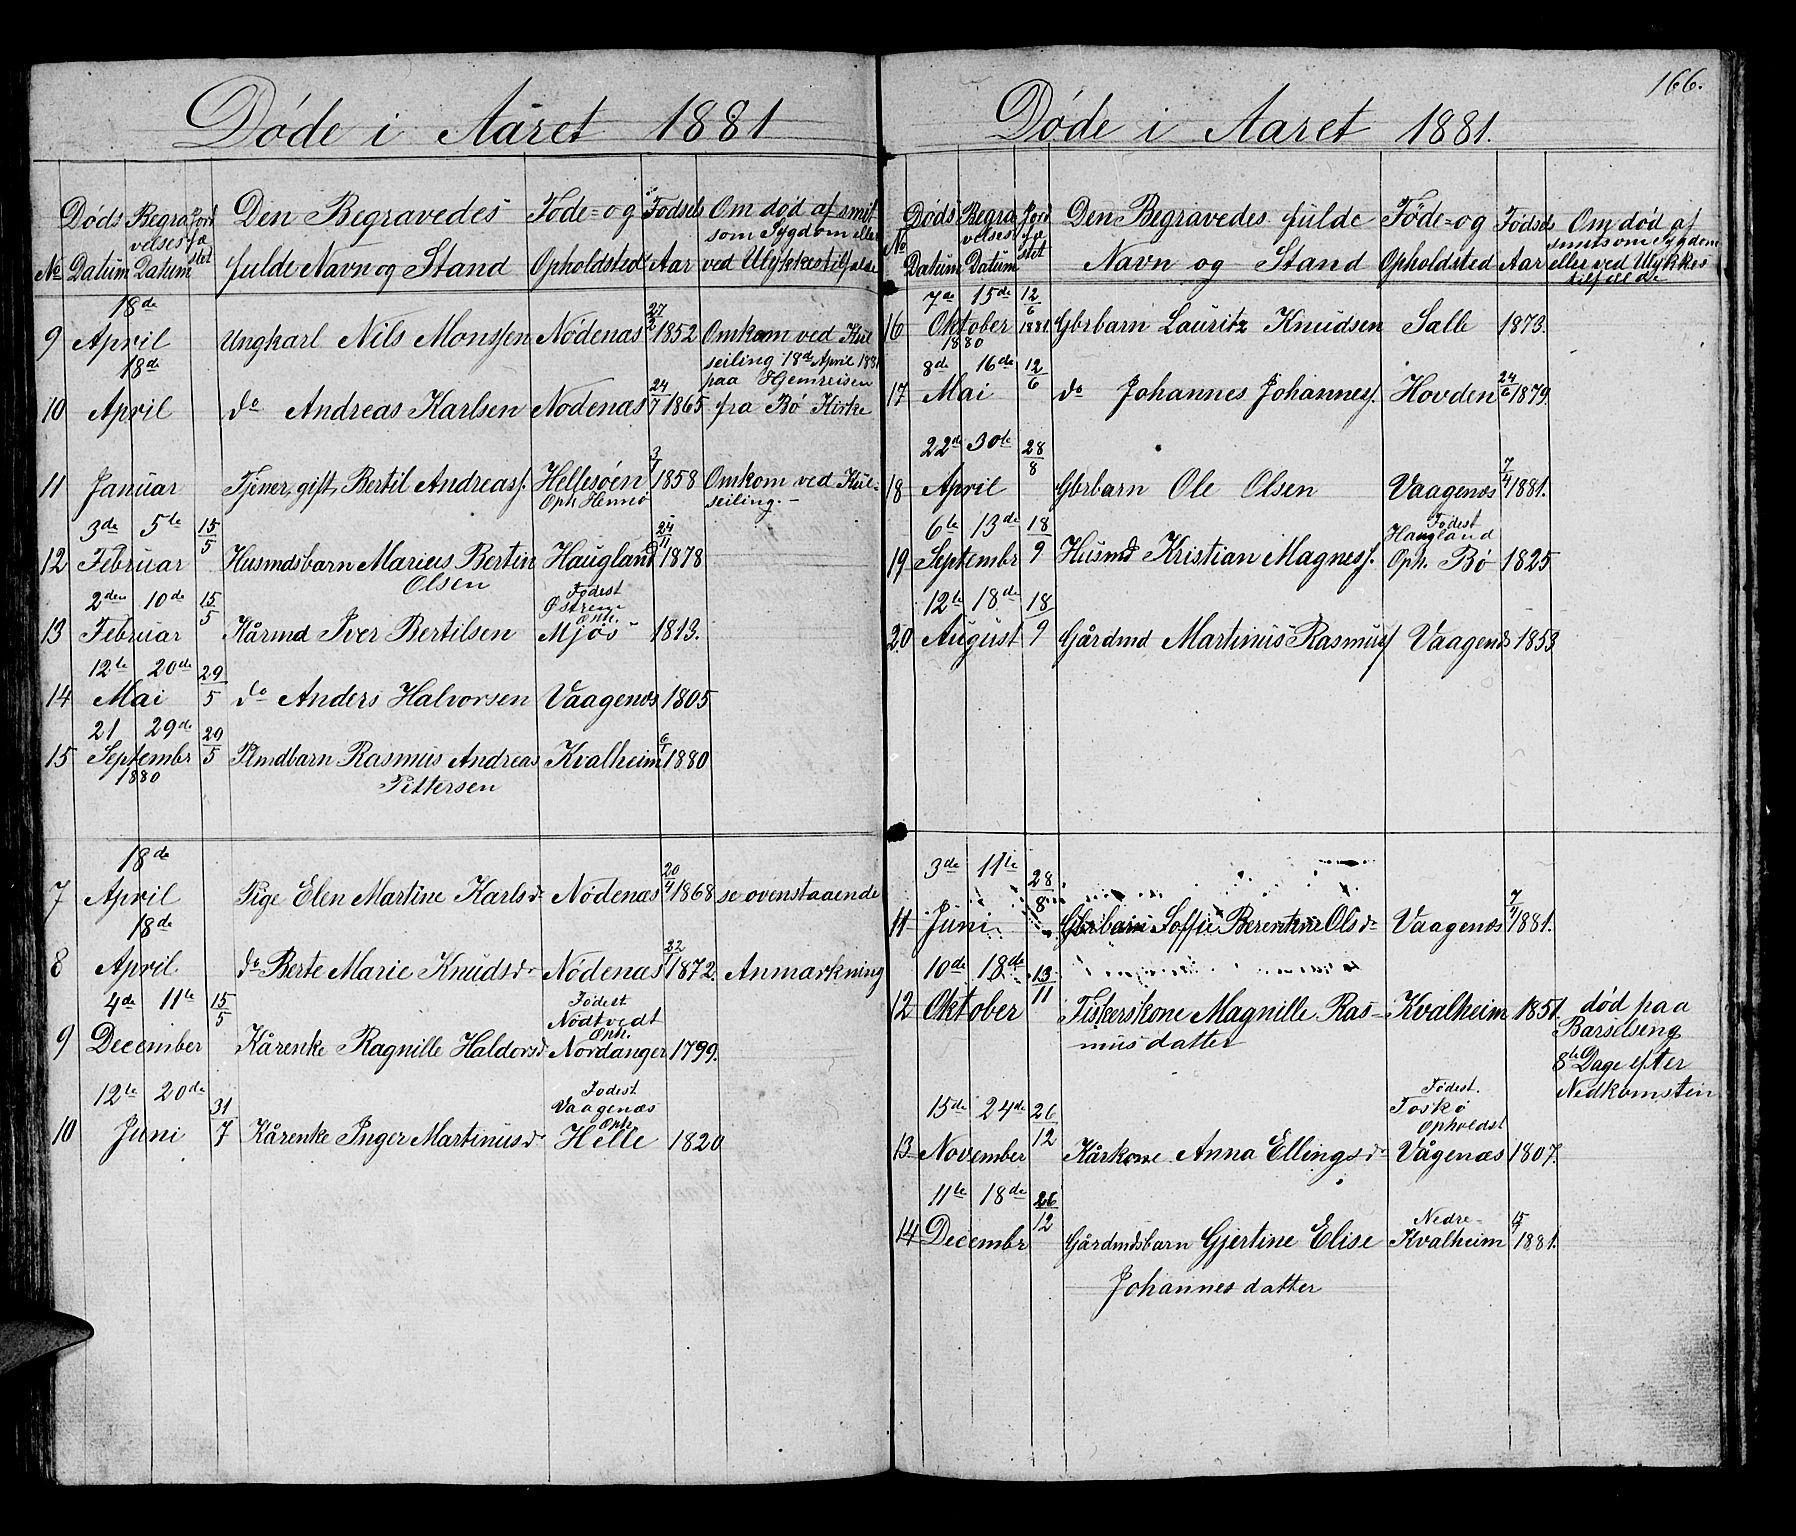 Døde i Aaret 1881
Døds Datum
Begravelses Datum
Jordfæstet
Den Begravedes fulde Navn og Stand
Føde= og Opholdsted
Fødsels Aar
Om død af smitsom Sygdom eller ved Ulykkestilfælde
№
18de
9 April Ungkarl Nils Monssen Nödenæs 27/2 1852 Omkom ved Kul
seiling 18d April 1881
18de
paa Hjemreisen
10 April do Andreas Karlsen Nodenæs 24/7 1865 fra Bø Kirke
11 Januar Tjener, gift, Bertil Andreass. Hellesøen 3/1 1858 Omkom ved Kul-
Oph Hennø seiling.-
3de 5te 15/5
12 Februar Husmdsbarn Marius Bertin Haugland 24/11 1878
Olsen
2den 10de 15/5 Födest
Østrem
Oph.
13 Februar Kårmd Iver Bertilsen Mjøs 1813.
12te 20de 29/5
14 Mai do Anders Halvorsen Vaagenæs 1805
21 29de 29/5
15 Septembr Plmdbarn Rasmus Andreas Kvalheim 6/1 1880
1880 Pittersen
18de
7 April Pige Elen Martine Karlsd. Nödenæs 20/4 1868 se ovenstaaende
18de
8 April do Berte Marie Knudsd. Nödenæs 22/1 1872. Anmærkning
4de 11te 15/5 Födest
Nödtvedt
Oph.
9 December Kårenke Ragnille Haldorsd. Nordanger 1799.
12te 20de 31/7 Fodest
Vaagenæs
Oph.
10 Juni Kårenke Inger Martinusd. Helle 1820
166.
Døde i Aaret 1881.
№
Døds Datum
Begravelses Datum
Jordfæstet
Den Begravedes fulde Navn og Stand
Føde= og Opholdsted
Fødsels Aar
Om død af smitsom Sygdom eller ved Ulykkestilfælde
7de 15de 12/6
16 Oktober 1881 Gbrbarn Lauritz Knudsen Salle 1873.
1880
8de 16de 12/6
17 Mai do Johannes Johanness. Hovden 24/6 1879.
22de 30te 28/8
18 April Gbrbarn Ole Olsen Vaagenæs 7/4 1881.
6te 13de 18/9 Födest
Haugland
19 Septembr Husmd Kristian Magness. Oph. Bö 1825
12te 18de 18/9
20 August Gårdmd Martinus Rasmuss Vaagenæs 1853
3de 11te 28/8
11 Juni Gbrbarn Soffie Berentine Olsd. Vaagenæs 7/4 1881.
10de 18de 13/11
12 Oktober Fiskerskone Magnille Ras- Kvalheim 1851. död paa
musdatter Barselseng
8te Dage efter
Nedkomsten
15de 24de 26/12 Födest.
Foskö
Opholdst
13 November Kårkone Anna Ellingsd. Vågenæs 1807.
11te 18de 26/12 Nedre-
14 Decembr Gårdmdsbarn Gjertine Elise Kvalheim 15/7 1881.
Johannesdatter